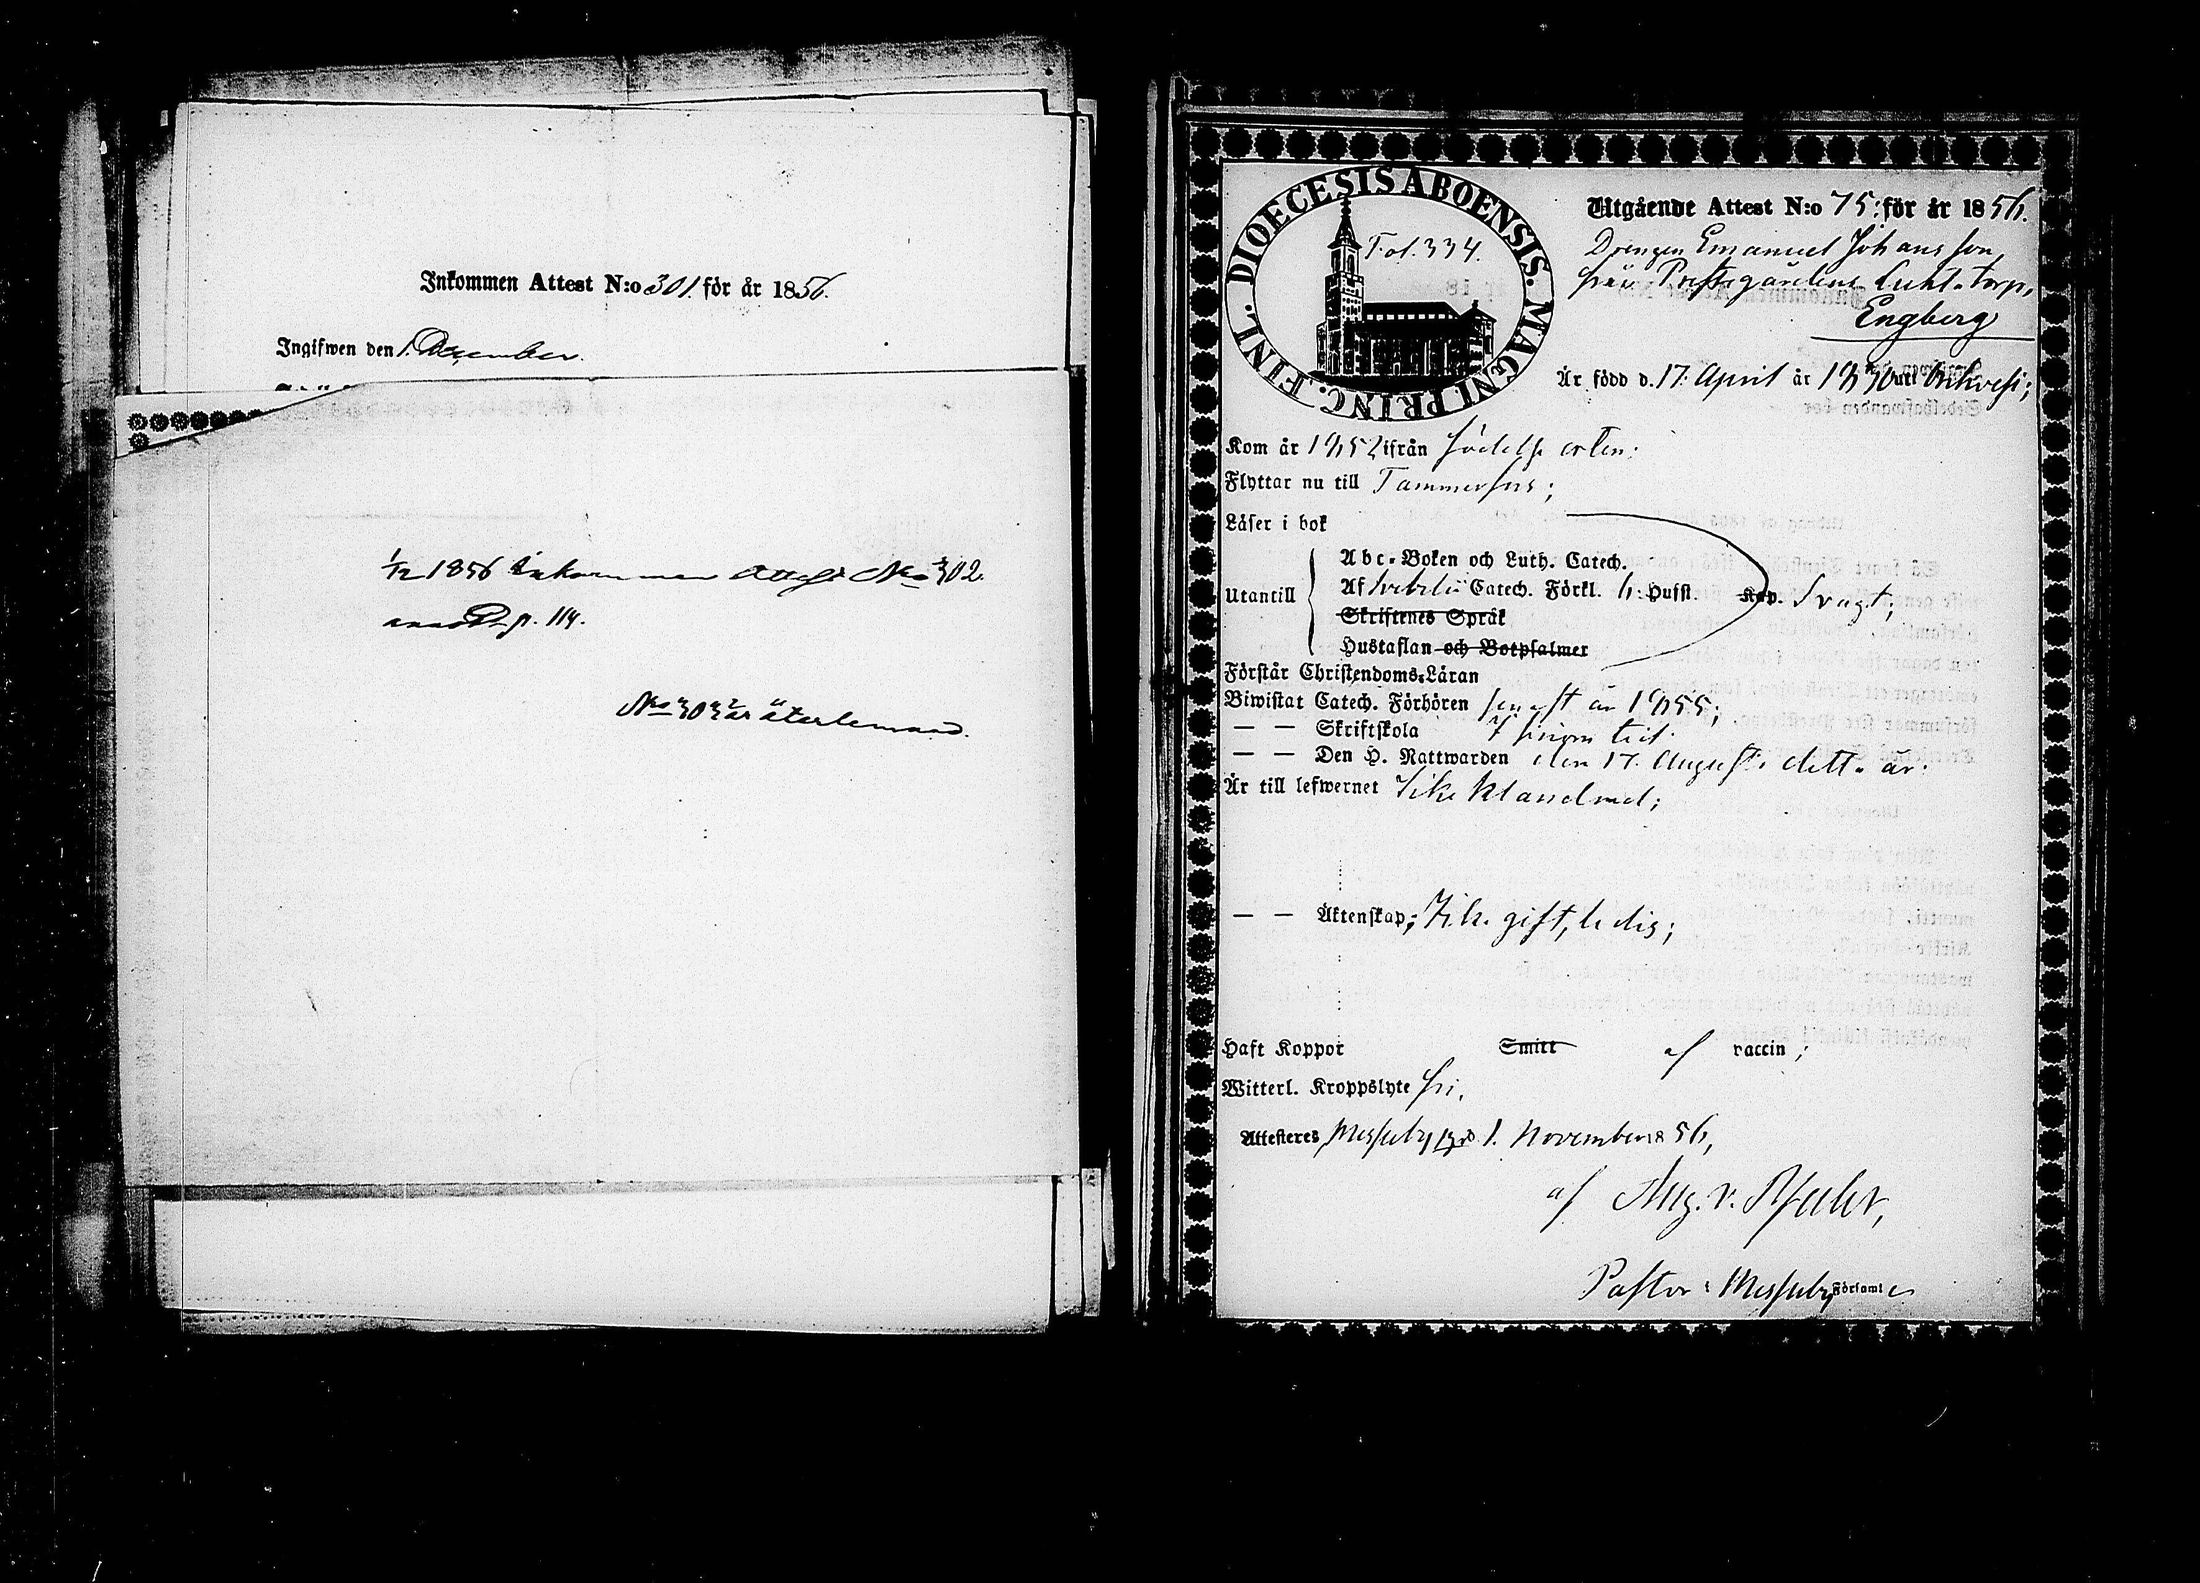 Inkommen Attest N:o 301. för år 1856.
Ingifwen den 1. December.
1/12 1856 Inkommen Attest No 302.
p. 114.
No 303 är återlemnad.
DIOECESIS ABOENSIS. MAGNI PRINC. FINL.
Fol. 334.
Utgående Attest N:o 75. för år 1856.
Drengen Emanuel Johansson
från Prestgårdens Torp,
Engberg
Är född d. 17. April år 1830 uti Orihvesi;
Kom år 1852 ifrån födelse orten;
Flyttar nu till Tammerfors;
Läser i bok
Abc-Boken och Luth. Catech.
Utantill Af Svebelii Catech. Förkl. Husfl. Kap. Svagt;
Skriftenes Språk
Hustaflan och Botpsalmer
Förstår Christendoms-Läran
Biwistat Catech. Förhören senast år 1855;
— — Skriftskola i sinom tid.
— — Den H. Nattwarden den 17. Augusti detta år.
Är till lefwernet Icke klandrad;
— — Äktenskap; Icke gift, ledig;
Haft Koppor Smitt af vaccin;
Witterl. Kroppslyte fri.
Attesteres Messuby d. 1. November 1856,
af Aug. v. Pfaler,
Pastor i Messuby Församl.